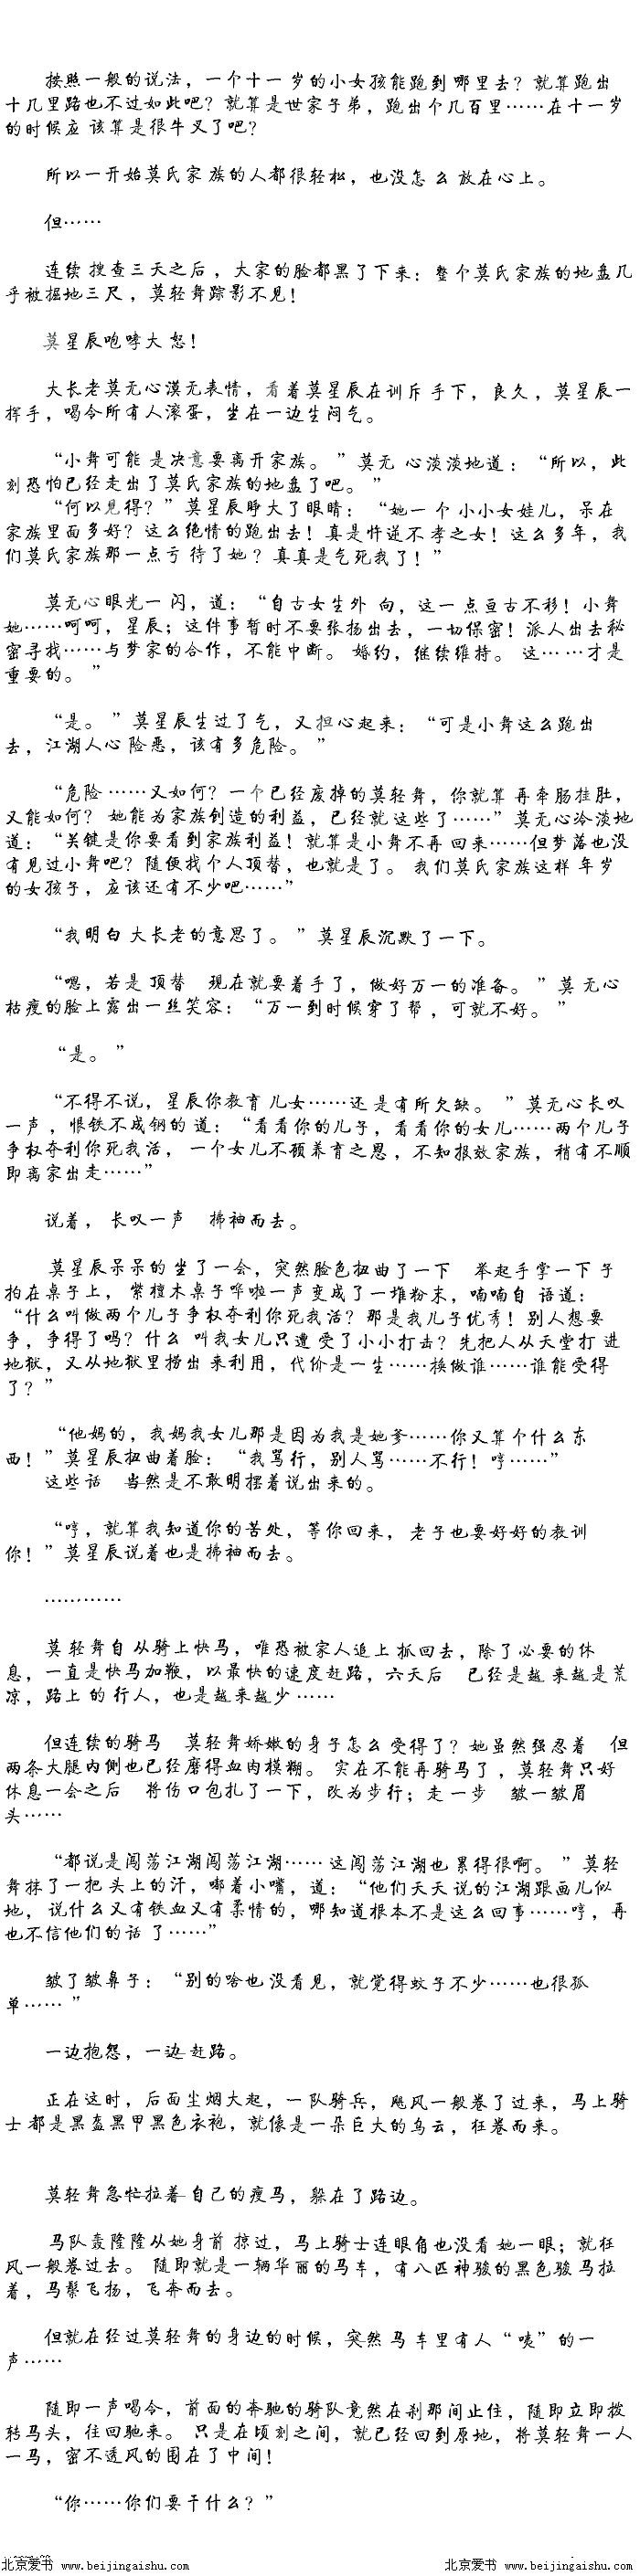 按照一般的说法，一个十一岁的小女孩能跑到哪里去？就算跑出
十几里路也不过如此吧？就算是世家子弟，跑出个几百里……在十一岁
的时候应该算是很牛叉了吧？
所以一开始莫氏家族的人都很轻松，也没怎么放在心上。
但……
连续搜查三天之后，大家的脸都黑了下来：整个莫氏家族的地盘几
乎被掘地三尺，莫轻舞踪影不见！
莫星辰咆哮大怒！
大长老莫无心漠无表情，看着莫星辰在训斥手下，良久，莫星辰一
挥手，喝令所有人滚蛋，坐在一边生闷气。
“小舞可能是决意要离开家族。”莫无心淡淡地道：“所以，此
刻恐怕已经走出了莫氏家族的地盘了吧。”
“何以见得？”莫星辰睁大了眼睛：“她一个小小女娃儿，呆在
家族里面多好？这么绝情的跑出去！真是忤逆不孝之女！这么多年，我
们莫氏家族那一点亏待了她？真真是气死我了！”
莫无心眼光一闪，道：“自古女生外向，这一点亘古不移！小舞
她……呵呵，星辰；这件事暂时不要张扬出去，一切保密！派人出去秘
密寻找……与梦家的合作，不能中断。婚约，继续维持。这……才是
重要的。”
“是。”莫星辰生过了气，又担心起来：“可是小舞这么跑出
去，江湖人心险恶，该有多危险。”
“危险……又如何？一个已经废掉的莫轻舞，你就算再牵肠挂肚，
又能如何？她能为家族创造的利益，已经就这些了……”莫无心冷淡地
道：“关键是你要看到家族利益！就算是小舞不再回来……但梦落也没
有见过小舞吧？随便找个人顶替，也就是了。我们莫氏家族这样年岁
的女孩子，应该还有不少吧……”
“我明白大长老的意思了。”莫星辰沉默了一下。
“嗯，若是顶替 现在就要着手了，做好万一的准备。”莫无心
枯瘦的脸上露出一丝笑容：“万一到时候穿了帮，可就不好。”
“是。”
“不得不说，星辰你教育儿女……还是有所欠缺。”莫无心长叹
一声，恨铁不成钢的道：“看看你的儿子，看看你的女儿……两个儿子
争权夺利你死我活，一个女儿不顾养育之恩，不知报效家族，稍有不顺
即离家出走……”
说着，长叹一声 拂袖而去。
莫星辰呆呆的坐了一会，突然脸色扭曲了一下 举起手掌一下子
拍在桌子上，紫檀木桌子哗啦一声变成了一堆粉末，喃喃自语道：
“什么叫做两个儿子争权夺利你死我活？那是我儿子优秀！别人想要
争，争得了吗？什么叫我女儿只遭受了小小打击？先把人从天堂打进
地狱，又从地狱里捞出来利用，代价是一生……换做谁……谁能受得
了？”
“他妈的，我妈我女儿那是因为我是她爹……你又算个什么东
西！”莫星辰扭曲着脸：“我骂行，别人骂……不行！哼……”
这些话 当然是不敢明摆着说出来的。
“哼，就算我知道你的苦处，等你回来，老子也要好好的教训
你！”莫星辰说着也是拂袖而去。
…………
莫轻舞自从骑上快马，唯恐被家人追上抓回去，除了必要的休
息，一直是快马加鞭，以最快的速度赶路，六天后 已经是越来越是荒
凉，路上的行人，也是越来越少……
但连续的骑马 莫轻舞娇嫩的身子怎么受得了？她虽然强忍着 但
两条大腿内侧也已经磨得血肉模糊。实在不能再骑马了，莫轻舞只好
休息一会之后 将伤口包扎了一下，改为步行；走一步 皱一皱眉
头……
“都说是闯荡江湖闯荡江湖……这闯荡江湖也累得很啊。”莫轻
舞抹了一把头上的汗，嘟着小嘴，道：“他们天天说的江湖跟画儿似
地，说什么又有铁血又有柔情的，哪知道根本不是这么回事……哼，再
也不信他们的话了……”
皱了皱鼻子：“别的啥也没看见，就觉得蚊子不少……也很孤
单……”
一边抱怨，一边赶路。
正在这时，后面尘烟大起，一队骑兵，飓风一般卷了过来，马上骑
士都是黑盔黑甲黑色衣袍，就像是一朵巨大的乌云，狂卷而来。
莫轻舞急忙拉着自己的瘦马，躲在了路边。
马队轰隆隆从她身前掠过，马上骑士连眼角也没看她一眼；就狂
风一般卷过去。随即就是一辆华丽的马车，有八匹神骏的黑色骏马拉
着，马鬃飞扬，飞奔而去。
但就在经过莫轻舞的身边的时候，突然马车里有人“咦”的一
声……
随即一声喝令，前面的奔驰的骑队竟然在刹那间止住，随即立即拨
转马头，往回驰来。只是在顷刻之间，就已经回到原地，将莫轻舞一人
一马，密不透风的围在了中间！
“你……你们要干什么？”
北京爱书 www.beijingaishu.com 北京爱书 www.beijingaishu.com